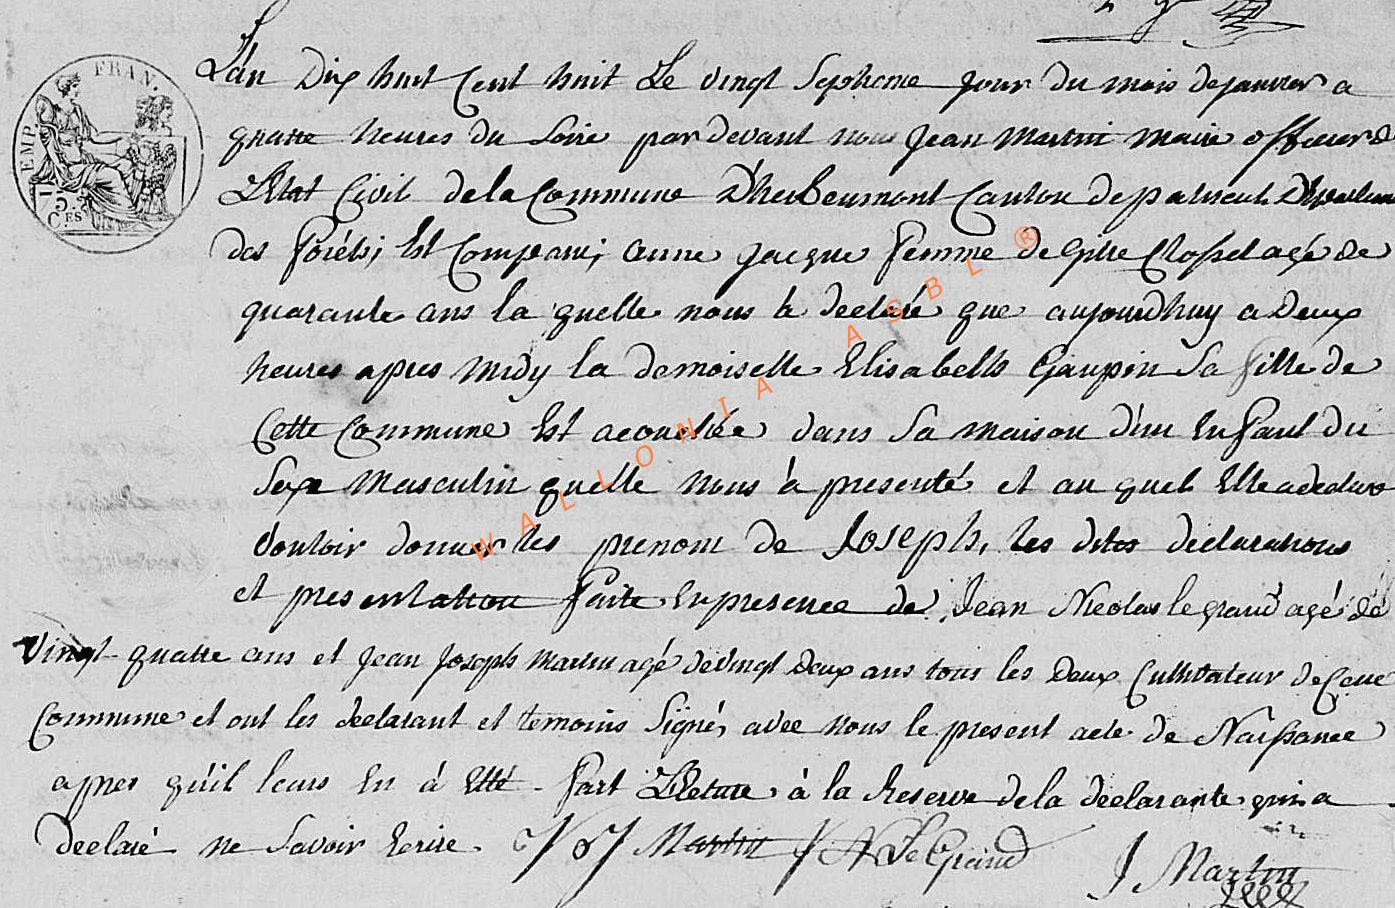 FRAN.
EMP.
75
C.ES
L'an Dix huit Cent huit Le vingt Septieme jour du mois dejanvier a
quatre heures du Soire par devant nous Jean Martin Maire officier de
L'Etat Civil dela Commune D'herbeumont Canton depaliseul Departement
des Foréts, Est Comparue, anne jacque femme de Gille Clossel agé de
quarante ans la quelle nous à declaré que aujourdhuy a Deux
heures apres midy la demoiselle Elisabeth Gaupin Sa fille de
Cette Commune Est acouchée dans Sa maison d'un Enfant du
Sexe Masculin quelle nous à presenté et au quel Elle a declaré
vouloir donner les prenom de Joseph, les dites declarations
et presentation faite En presence de Jean Nicolas le grand agé de
Vingt-quatre ans et Jean Joseph Martin agé de vingt Deux ans tous les Deux Cultivateur de Cette
Commune et ont les declarant et temoins Signés avec nous le present acte de Naissance
apres qu'il leurs En à Etté fait Lecture à la Reserve dela declarante qui a
declaré ne Savoir Ecrire. J J Martin J N Le Grand
J Martin
WALLONIA ASBL ®